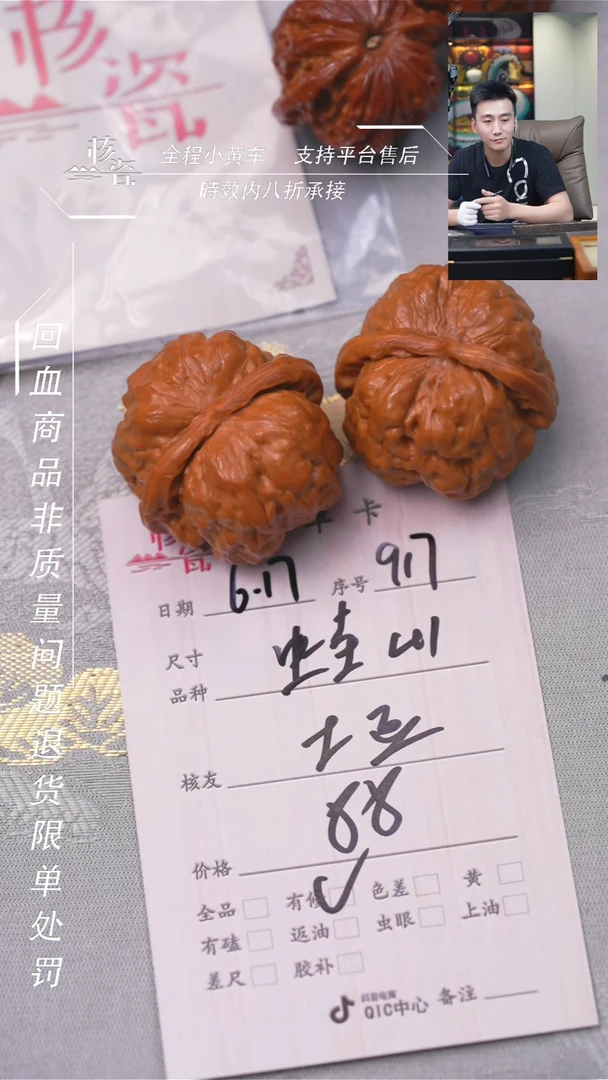 核瓷
核瓷
全程小黄车 支持平台售后
時效内八折承接
回血商品非质量问题退货限单处罚
卡
核瓷
日期 6.17 序号 917
尺寸
品种 蛙山
核友 土豆
价格 88
全品 有修 ✓ 色差 黄
有磕 返油 虫眼 上油
差尺 胶补
抖音电商
QIC中心 备注